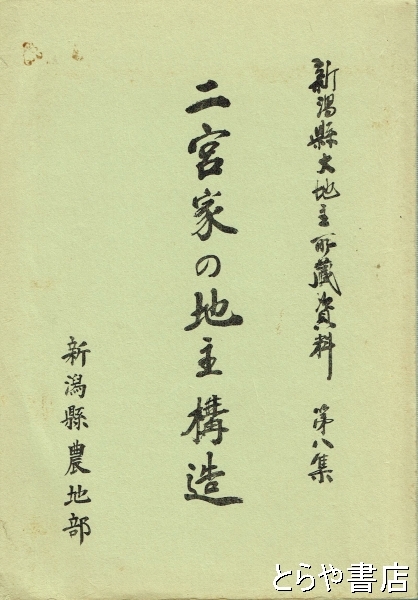 新潟縣大地主所藏資料 第八集
二宮家の地主構造
新潟縣農地部
とらや書店